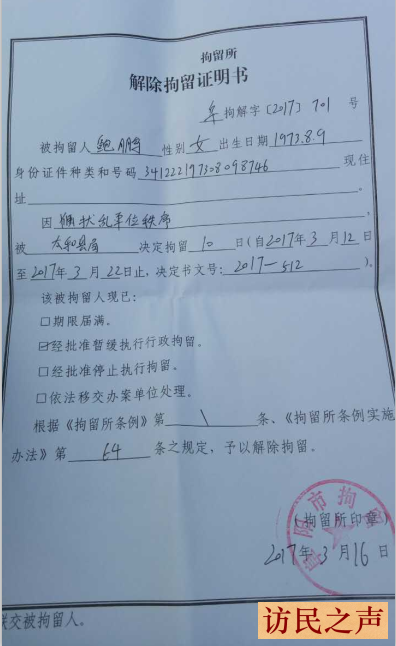 拘留所
解除拘留证明书
阜拘解字〔2017〕701号
被拘留人 鲍鹏 性别 女 出生日期 1973.8.9
身份证件种类和号码 341222197308098746 现住
址
因 扰乱单位秩序,
被 太和县局 决定拘留 10 日(自2017年3月12日
至2017年3月22日止,决定书文号:2017—512)。
该被拘留人现已:
□期限届满。
☑经批准暂缓执行行政拘留。
□经批准停止执行拘留。
□依法移交办案单位处理。
根据《拘留所条例》第 \ 条、《拘留所条例实施
办法》第 64 条之规定,予以解除拘留。
阳市拘
(拘留所印章)
2017年3月16日
联交被拘留人。
访民之声